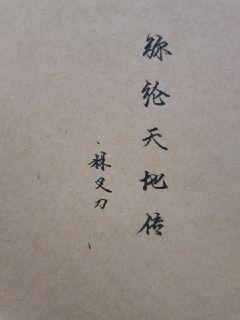 弥纶天地传
林又刀